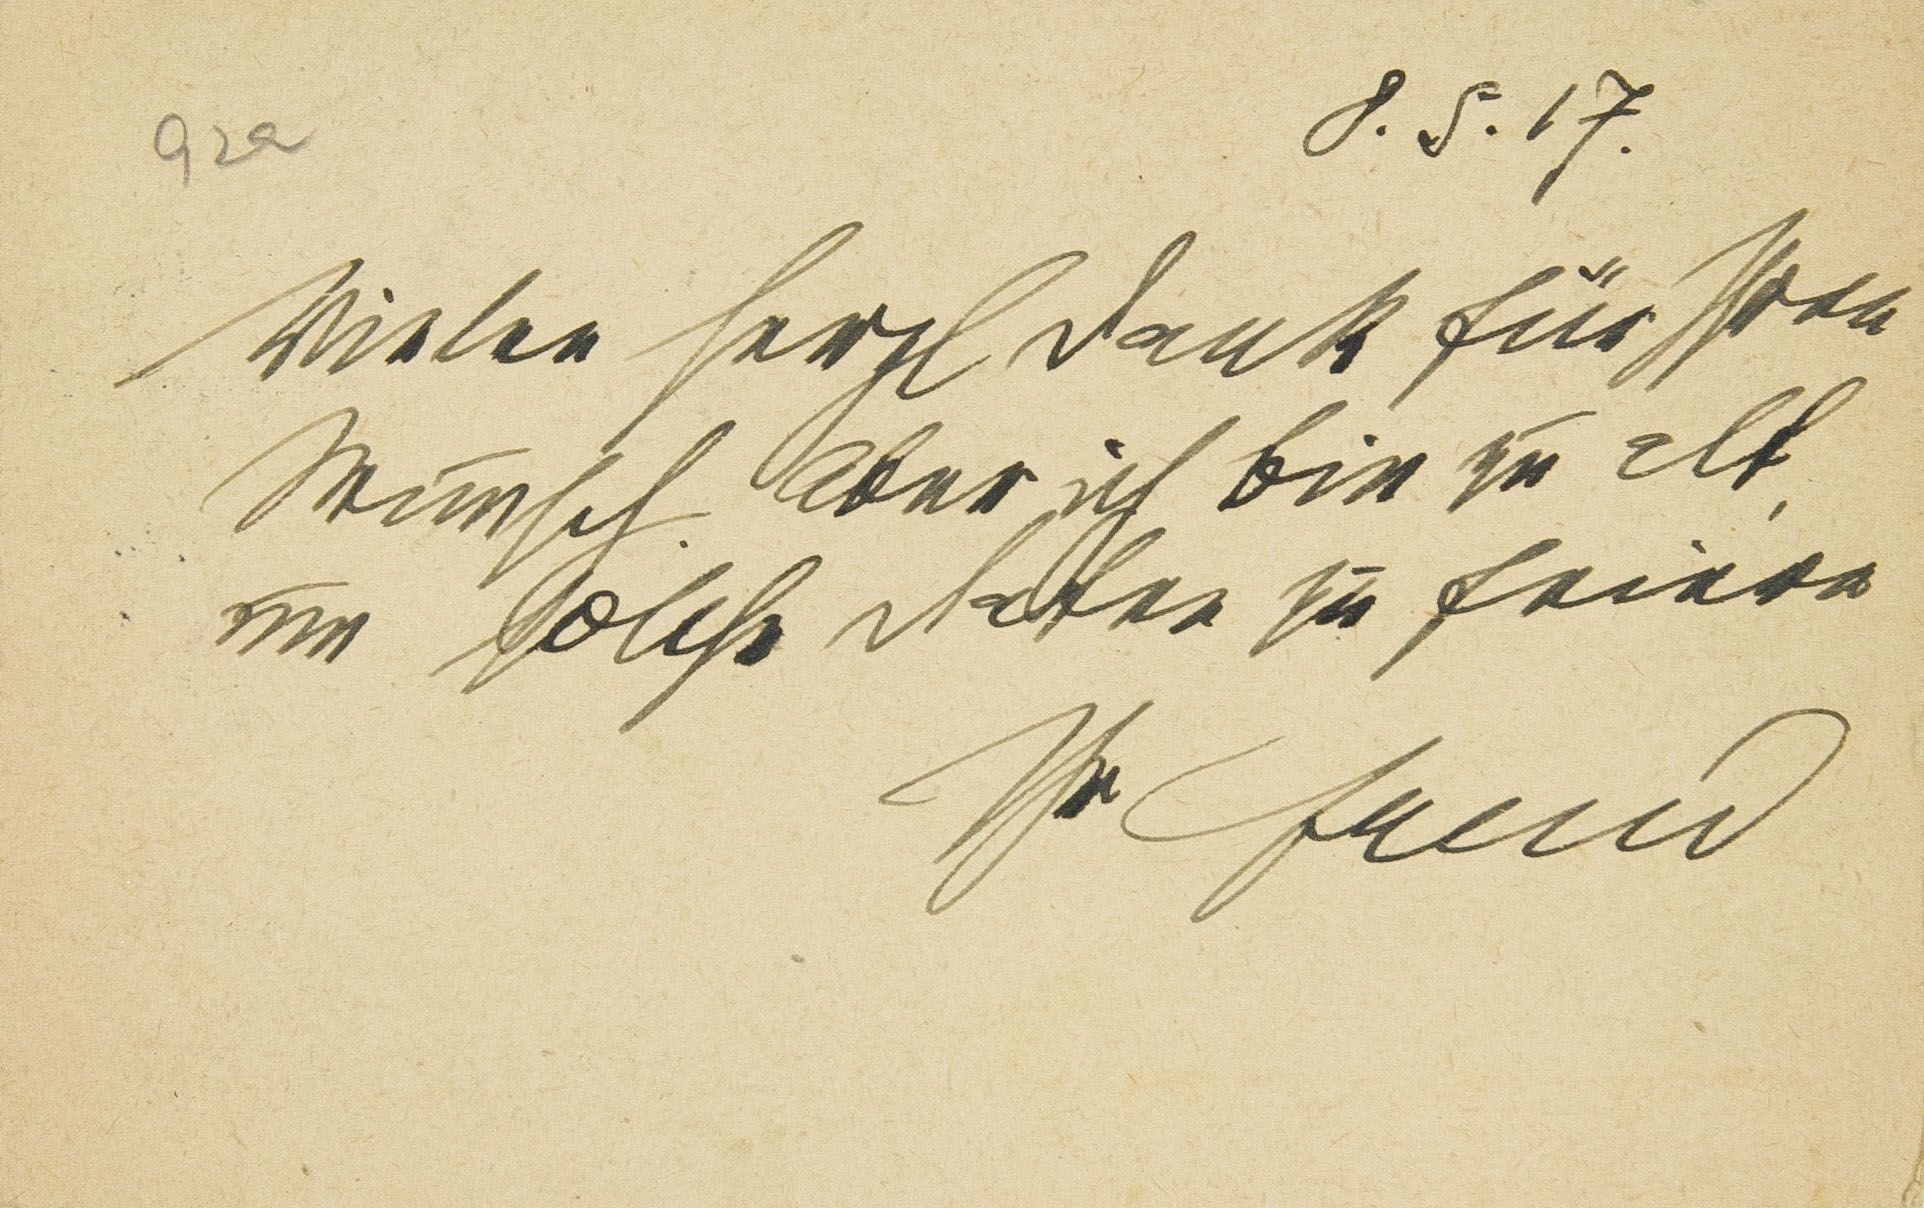 92a
8. 5. 17.
Vielen herzl Dank für Ihren
Wunsch. Aber ich bin zu alt,
um solche Daten zu feiern
Ihr Freud